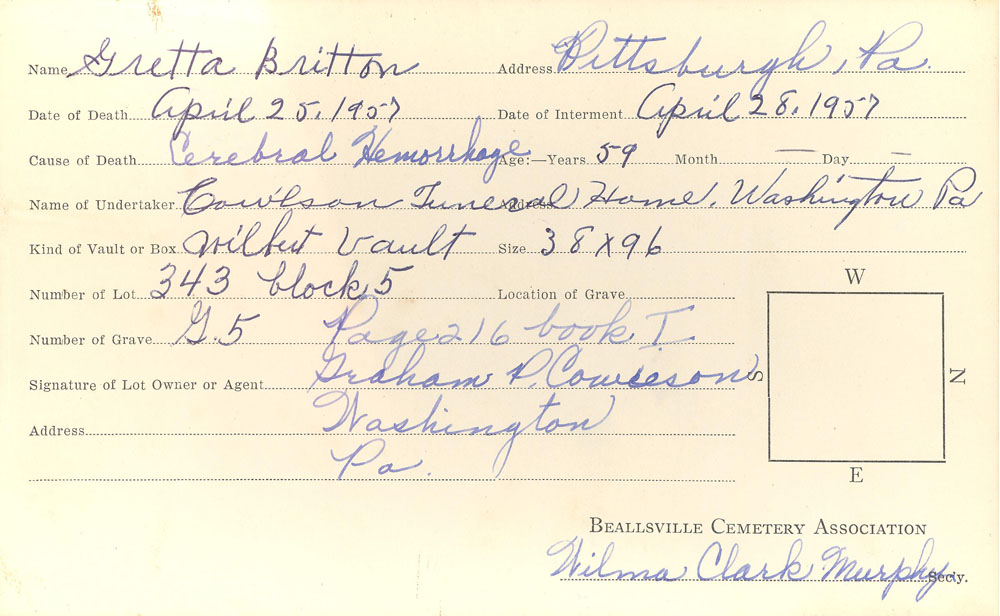 Name Gretta Britton Address Pittsburgh, Pa.
Date of Death April 25, 1957 Date of Interment April 28, 1957
Cause of Death Cerebral Hemorrhage Age:—Years 59 Month — Day —
Name of Undertaker Cowlson Funeral Home, Address Washington Pa
Kind of Vault or Box Wilbert Vault Size 38 X 96
Number of Lot 343 block 5 Location of Grave
Number of Grave G. 5 Page 216 book I
Signature of Lot Owner or Agent Graham P. Cowieson
Address Washington
Pa.
W
S
N
E
BEALLSVILLE CEMETERY ASSOCIATION
Wilma Clark Murphy Secly.